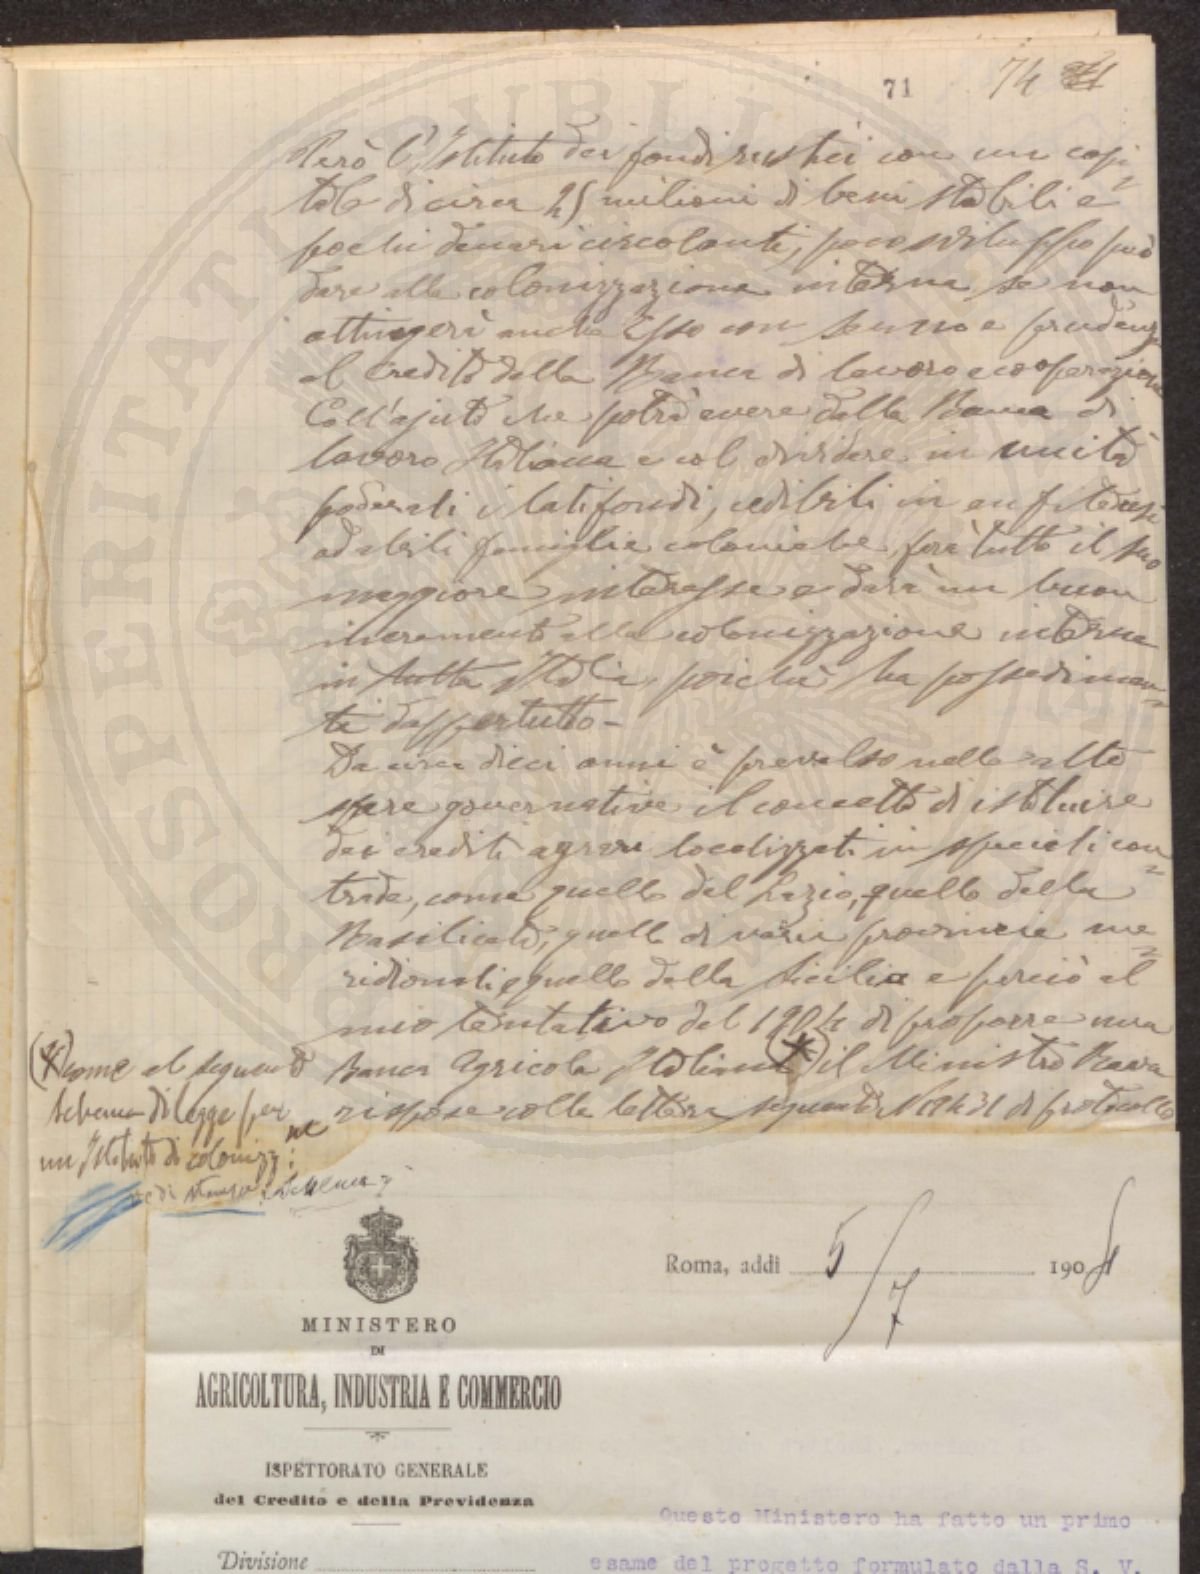 71 74
Però l'Istituto dei fondi rustici con un capi=
tale di circa 25 milioni di beni stabili e
pochi denari circolanti, poco sviluppo può
dare alla colonizzazione interna se non
attingerà anche Esso con senno e prudenza
al credito della Banca di lavoro e cooperazione
Coll'ajuto che potrà avere dalla Banca di
lavoro Italiana e col dividere in unità
poderali i latifondi, cedibili in enfiteusi
ad abili famiglie coloniche, farà tutto il suo
maggiore interesse e darà un buon
incremento alla colonizzazione interna
in tutta Italia, poichè ha possedimen=
ti dappertutto -
Da circa dieci anni è prevalso nelle alte
sfere governative il concetto di istituire
dei crediti agrari localizzati in speciali con=
trade, come quello del Lazio, quello della
Basilicata, quello di varie provincie me=
ridionali, quello della Sicilia e perciò al
mio tentativo del 1904 di proporre una
Banca Agricola Italiana (*) il Ministro Rava
rispose colla lettera seguente di protocollo
(*) come al seguente
schema di legge per
un Istituto di colonizz:ne
schema
Roma, addì 5/7 1904
MINISTERO
DI
AGRICOLTURA, INDUSTRIA E COMMERCIO
ISPETTORATO GENERALE
del Credito e della Previdenza
Divisione
Questo Ministero ha fatto un primo
esame del progetto formulato dalla S. V.
PROSPERITATI PUBLICAE